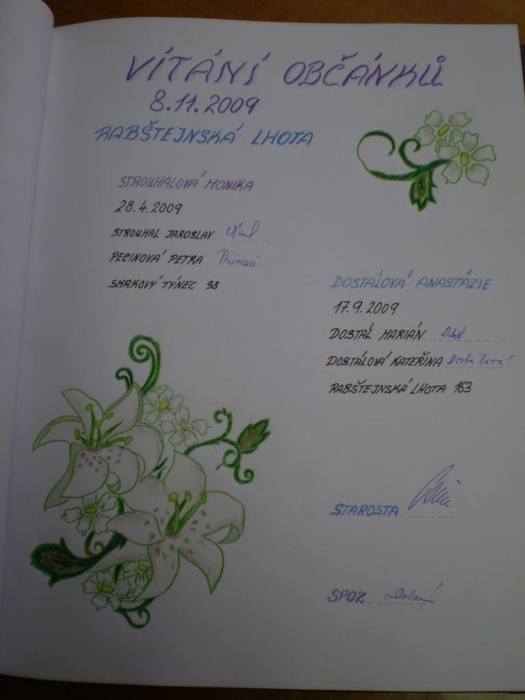 VÍTÁNÍ OBČÁNKŮ
8.11.2009
RABŠTEJNSKÁ LHOTA
STROUHALOVÁ MONIKA
28.4.2009
STROUHAL JAROSLAV
PECINOVÁ PETRA
SMRKOVÝ TÝNEC 38
DOSTÁLOVÁ ANASTÁZIE
17.9.2009
DOSTÁL MARIÁN
DOSTÁLOVÁ KATEŘINA Dostálová
RABŠTEJNSKÁ LHOTA 163
STAROSTA
SPOZ